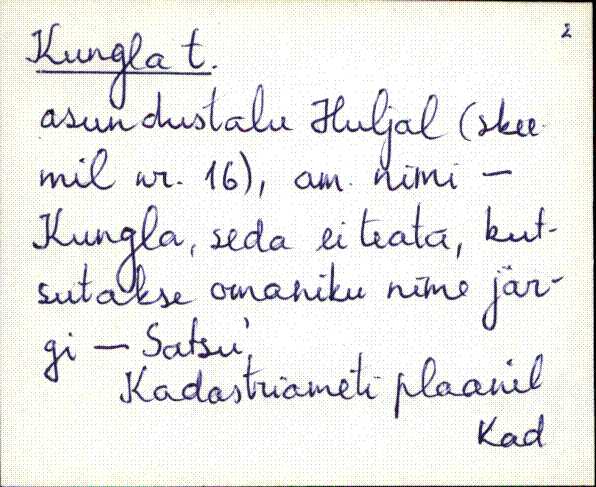 2
Kungla t.
asundustalu Huljal (skee-
mil nr. 16), am. nimi –
Kungla, seda ei teata, kut-
sutakse omaniku nime jär-
gi – Satsu'
Kadastriameti plaanil
Kad